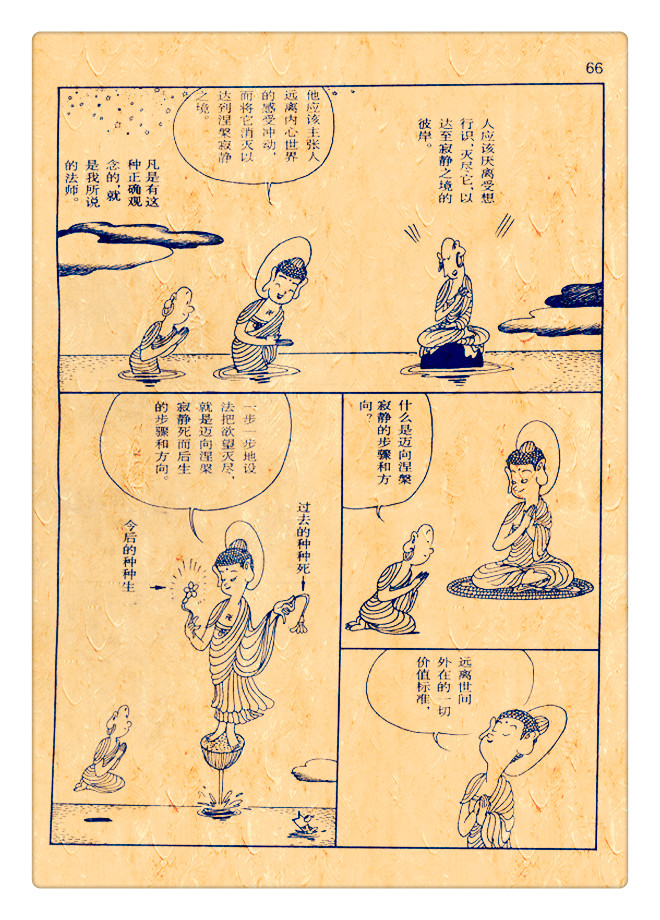 66
人应该厌离受想
行识、灭尽它、以
达至寂静之境的
彼岸。
他应该主张人
远离内心世界
的感受冲动，
而将它消灭以
达到涅槃寂静
之境。
凡是有这
种正确观
念的，就
是我所说
的法师。
什么是迈向涅槃
寂静的步骤和方
向？
远离世间
外在的一切
价值标准，
一步一步地设
法把欲望灭尽，
就是迈向涅槃
寂静死而后生
的步骤和方向。
过去的种种死
今后的种种生